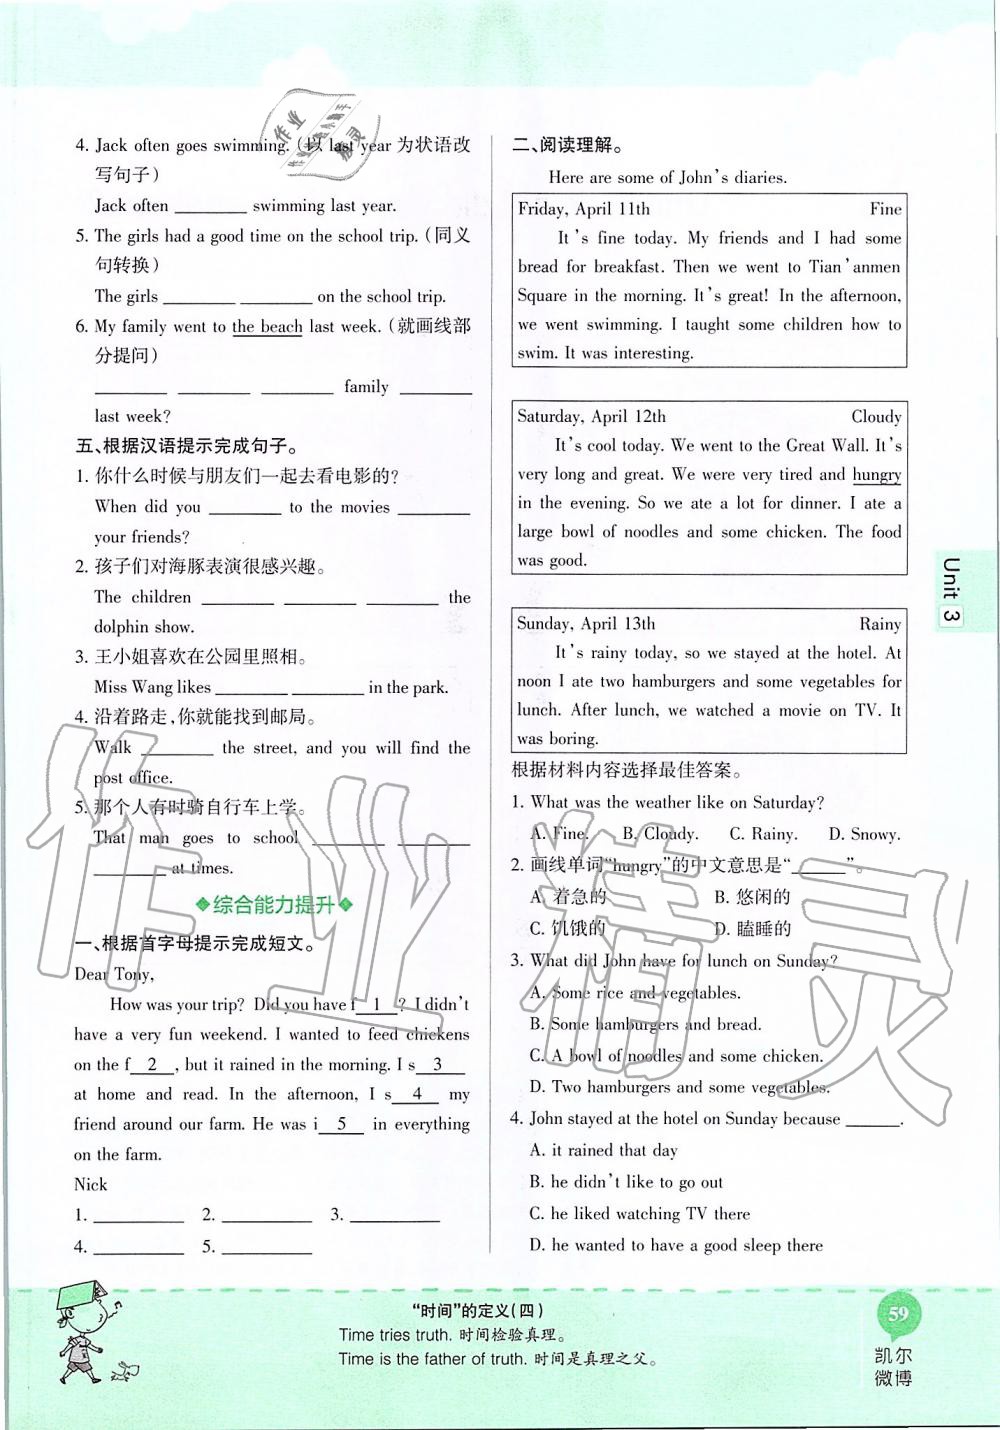 4. Jack often goes swimming.（以 last year 为状语改
写句子）
Jack often ________ swimming last year.
5. The girls had a good time on the school trip.（同义
句转换）
The girls ________ ________ on the school trip.
6. My family went to the beach last week.（就画线部
分提问）
________ ________ ________ family ________
last week?
五、根据汉语提示完成句子。
1. 你什么时候与朋友们一起去看电影的?
When did you ________ to the movies ________
your friends?
2. 孩子们对海豚表演很感兴趣。
The children ________ ________ ________ the
dolphin show.
3. 王小姐喜欢在公园里照相。
Miss Wang likes ________ ________ in the park.
4. 沿着路走,你就能找到邮局。
Walk ________ the street, and you will find the
post office.
5. 那个人有时骑自行车上学。
That man goes to school ________ ________
________ at times.
综合能力提升
一、根据首字母提示完成短文。
Dear Tony,
How was your trip? Did you have f 1 ? I didn't
have a very fun weekend. I wanted to feed chickens
on the f 2 , but it rained in the morning. I s 3
at home and read. In the afternoon, I s 4 my
friend around our farm. He was i 5 in everything
on the farm.
Nick
1. ________ 2. ________ 3. ________
4. ________ 5. ________
二、阅读理解。
Here are some of John's diaries.
Friday, April 11th Fine
It's fine today. My friends and I had some
bread for breakfast. Then we went to Tian'anmen
Square in the morning. It's great! In the afternoon,
we went swimming. I taught some children how to
swim. It was interesting.
Saturday, April 12th Cloudy
It's cool today. We went to the Great Wall. It's
very long and great. We were very tired and hungry
in the evening. So we ate a lot for dinner. I ate a
large bowl of noodles and some chicken. The food
was good.
Sunday, April 13th Rainy
It's rainy today, so we stayed at the hotel. At
noon I ate two hamburgers and some vegetables for
lunch. After lunch, we watched a movie on TV. It
was boring.
根据材料内容选择最佳答案。
1. What was the weather like on Saturday?
A. Fine. B. Cloudy. C. Rainy. D. Snowy.
2. 画线单词“hungry”的中文意思是“______”。
A. 着急的 B. 悠闲的
C. 饥饿的 D. 瞌睡的
3. What did John have for lunch on Sunday?
A. Some rice and vegetables.
B. Some hamburgers and bread.
C. A bowl of noodles and some chicken.
D. Two hamburgers and some vegetables.
4. John stayed at the hotel on Sunday because ______.
A. it rained that day
B. he didn't like to go out
C. he liked watching TV there
D. he wanted to have a good sleep there
Unit 3
“时间”的定义(四)
Time tries truth. 时间检验真理。
Time is the father of truth. 时间是真理之父。
59
凯尔
微博
作业精灵